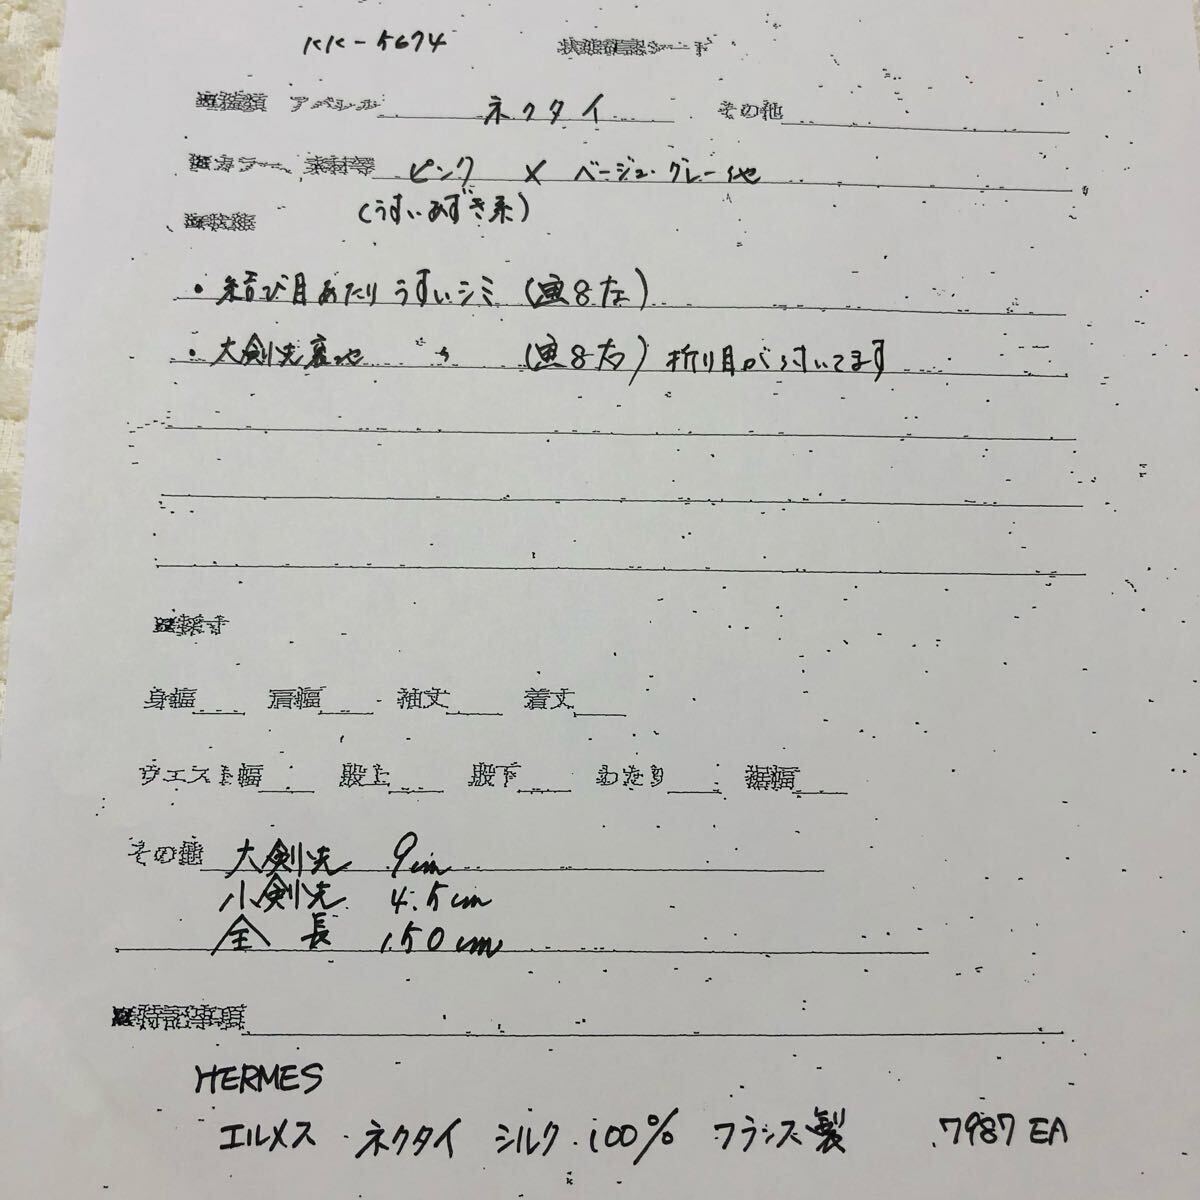 KK-5674 状態確認シート
■種類 アパレル ネクタイ その他
■カラー、素材等 ピンク × ベージュ・グレー地
(うすいあずき系)
■状態
・結び目あたりうすいシミ (画8左)
・大剣先裏地 〃 (画8右) 折り目が付いてます
■採寸
身幅 肩幅 袖丈 着丈
ウエスト幅 股上 股下 わたり 裾幅
その他 大剣先 9cm
小剣先 4.5cm
全長 150cm
■特記事項
HERMES
エルメス ネクタイ シルク 100% フランス製 7987 EA